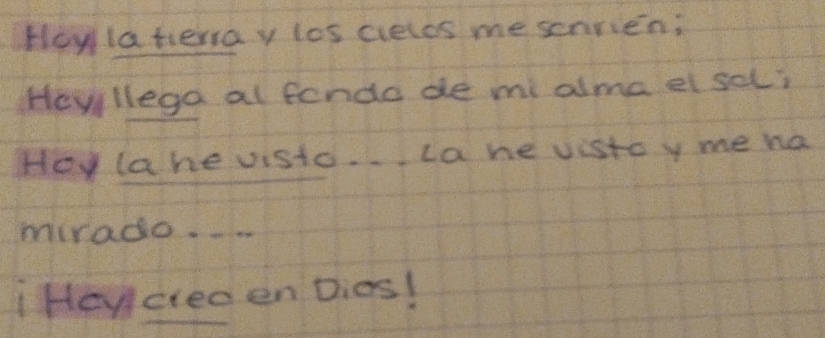 Hoy la tierra y los cielos me sonríen;
Hoy llega al fondo de mi alma el sol;
Hoy la he visto.... La he visto y me ha
mirado....
¡Hoy creo en Dios!